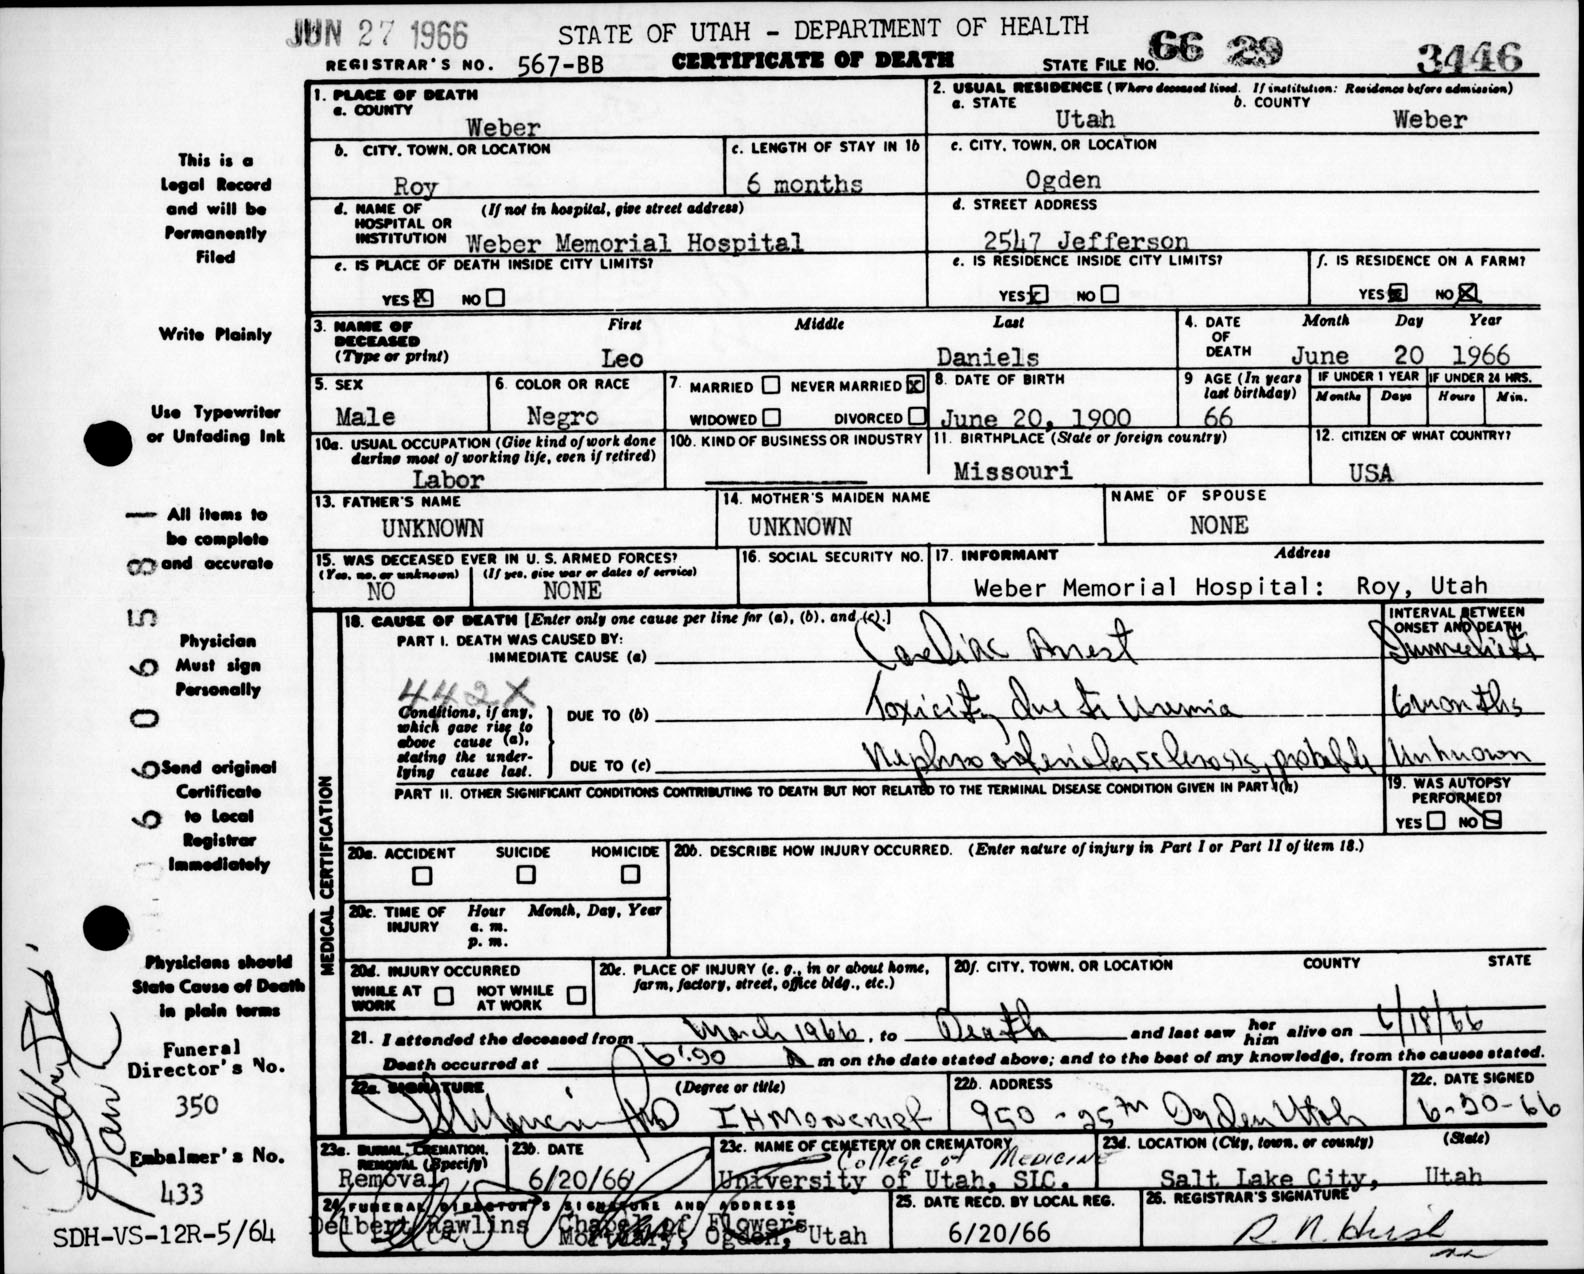 JUN 27 1966
STATE OF UTAH - DEPARTMENT OF HEALTH
REGISTRAR'S NO. 567-BB
CERTIFICATE OF DEATH
STATE FILE NO. 66 29 3446
This is a
Legal Record
and will be
Permanently
Filed
Write Plainly
Use Typewriter
or Unfading Ink
— All items to
be complete
and accurate
Physician
Must sign
Personally
Send original
Certificate
to Local
Registrar
Immediately
Physicians should
State Cause of Death
in plain terms
Funeral
Director's No.
350
Embalmer's No.
433
SDH-VS-12R-5/64
1. PLACE OF DEATH
a. COUNTY
Weber
2. USUAL RESIDENCE (Where deceased lived. If institution: Residence before admission)
a. STATE
Utah
b. COUNTY
Weber
b. CITY, TOWN, OR LOCATION
Roy
c. LENGTH OF STAY IN 1b
6 months
c. CITY, TOWN, OR LOCATION
Ogden
d. NAME OF HOSPITAL OR INSTITUTION (If not in hospital, give street address)
Weber Memorial Hospital
d. STREET ADDRESS
2547 Jefferson
e. IS PLACE OF DEATH INSIDE CITY LIMITS?
YES X NO
e. IS RESIDENCE INSIDE CITY LIMITS?
YES X NO
f. IS RESIDENCE ON A FARM?
YES NO X
3. NAME OF DECEASED (Type or print)
First Middle Last
Leo Daniels
4. DATE OF DEATH
Month Day Year
June 20 1966
5. SEX
Male
6. COLOR OR RACE
Negro
7. MARRIED NEVER MARRIED X
WIDOWED DIVORCED
8. DATE OF BIRTH
June 20, 1900
9 AGE (In years last birthday)
66
IF UNDER 1 YEAR
Months Days
IF UNDER 24 HRS.
Hours Min.
10a. USUAL OCCUPATION (Give kind of work done during most of working life, even if retired)
Labor
10b. KIND OF BUSINESS OR INDUSTRY
11. BIRTHPLACE (State or foreign country)
Missouri
12. CITIZEN OF WHAT COUNTRY?
USA
13. FATHER'S NAME
UNKNOWN
14. MOTHER'S MAIDEN NAME
UNKNOWN
NAME OF SPOUSE
NONE
15. WAS DECEASED EVER IN U. S. ARMED FORCES?
(Yes, no, or unknown) (If yes, give war or dates of service)
NO NONE
16. SOCIAL SECURITY NO.
17. INFORMANT Address
Weber Memorial Hospital: Roy, Utah
MEDICAL CERTIFICATION
18. CAUSE OF DEATH [Enter only one cause per line for (a), (b), and (c).]
INTERVAL BETWEEN ONSET AND DEATH
PART I. DEATH WAS CAUSED BY:
IMMEDIATE CAUSE (a) Cardiac Arrest Immediate
442X
Conditions, if any, which gave rise to above cause (a), stating the underlying cause last.
DUE TO (b) Toxicity due to Uremia 6 months
DUE TO (c) Nephroarteriolarsclerosis, probably Unknown
PART II. OTHER SIGNIFICANT CONDITIONS CONTRIBUTING TO DEATH BUT NOT RELATED TO THE TERMINAL DISEASE CONDITION GIVEN IN PART I(a)
19. WAS AUTOPSY PERFORMED?
YES NO
20a. ACCIDENT SUICIDE HOMICIDE
20b. DESCRIBE HOW INJURY OCCURRED. (Enter nature of injury in Part I or Part II of item 18.)
20c. TIME OF INJURY Hour Month, Day, Year
a. m.
p. m.
20d. INJURY OCCURRED
WHILE AT WORK NOT WHILE AT WORK
20e. PLACE OF INJURY (e. g., in or about home, farm, factory, street, office bldg., etc.)
20f. CITY, TOWN, OR LOCATION COUNTY STATE
21. I attended the deceased from March 1966, to Death and last saw her him alive on 6/18/66
Death occurred at 6:90 A m on the date stated above; and to the best of my knowledge, from the causes stated.
22a. SIGNATURE (Degree or title)
I H MONCRIEF
22b. ADDRESS
950 - 25TH Ogden Utah
22c. DATE SIGNED
6-20-66
23a. BURIAL, CREMATION, REMOVAL (Specify)
Removal
23b. DATE
6/20/66
23c. NAME OF CEMETERY OR CREMATORY
College of MEDICINE
University of Utah, SLC.
23d. LOCATION (City, town, or county) (State)
Salt Lake City, Utah
24. FUNERAL DIRECTOR'S SIGNATURE AND ADDRESS
Delbert Rawlins Chapel of Flowers
Mortuary, Ogden, Utah
25. DATE RECD. BY LOCAL REG.
6/20/66
26. REGISTRAR'S SIGNATURE
R. N. Hirst